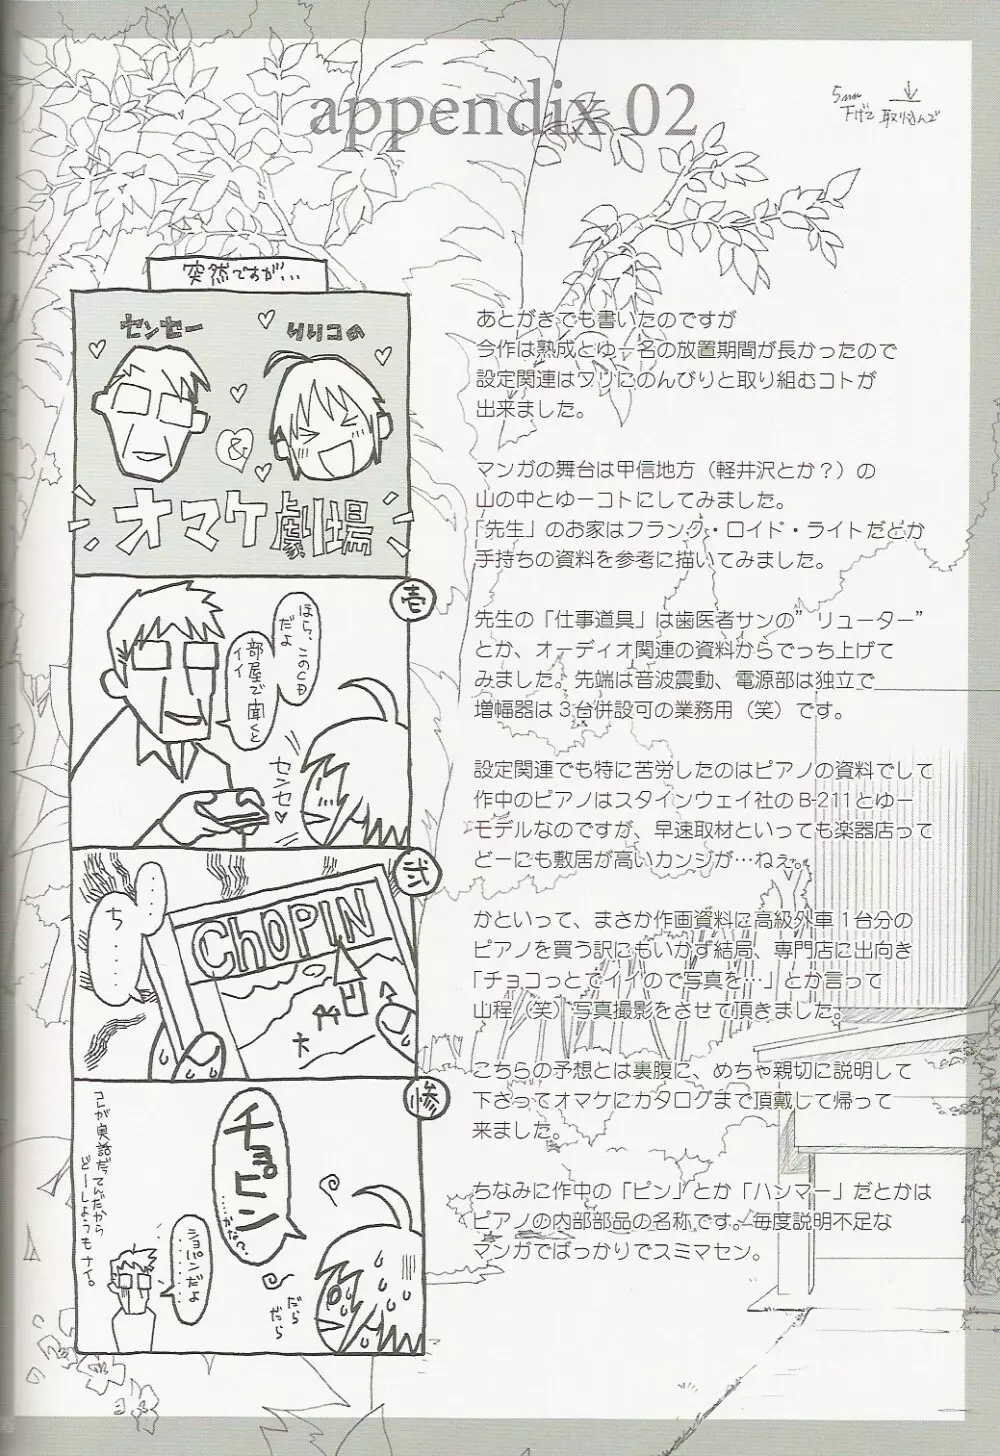 appendix 02
5mm
下げて 取り込んで
突然ですが、、、
センセー
&
リリコの
オマケ劇場
壱
ほら、このCD
だよ
部屋で聞くと
イイ
センセ♡
弐
・・・
ち・・・・
CHOPIN
惨
チョピン
・・・かな?、
ショパンだよ
・・・・・・
だら
だら
コレが実話だってんだから
どーしようもナイ。
あとがきでも書いたのですが
今作は熟成とゆー名の放置期間が長かったので
設定関連はワリにのんびりと取り組むコトが
出来ました。
マンガの舞台は甲信地方（軽井沢とか？）の
山の中とゆーコトにしてみました。
「先生」のお家はフランク・ロイド・ライトだとか
手持ちの資料を参考に描いてみました。
先生の「仕事道具」は歯医者サンの”リューター”
とか、オーディオ関連の資料からでっち上げて
みました。先端は音波震動、電源部は独立で
増幅器は３台併設可の業務用（笑）です。
設定関連でも特に苦労したのはピアノの資料でして
作中のピアノはスタインウェイ社のB-211とゆー
モデルなのですが、早速取材といっても楽器店って
どーにも敷居が高いカンジが…ねぇ。
かといって、まさか作画資料に高級外車１台分の
ピアノを買う訳にもいかず結局、専門店に出向き
「チョコっとでイイので写真を…」とか言って
山程（笑）写真撮影をさせて頂きました。
こちらの予想とは裏腹に、めちゃ親切に説明して
下さってオマケにカタログまで頂戴して帰って
来ました。
ちなみに作中の「ピン」とか「ハンマー」だとかは
ピアノの内部部品の名称です。毎度説明不足な
マンガでばっかりでスミマセン。